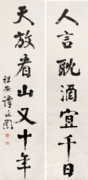 人言耽酒宜千日
天放看山又十年
譚延闓